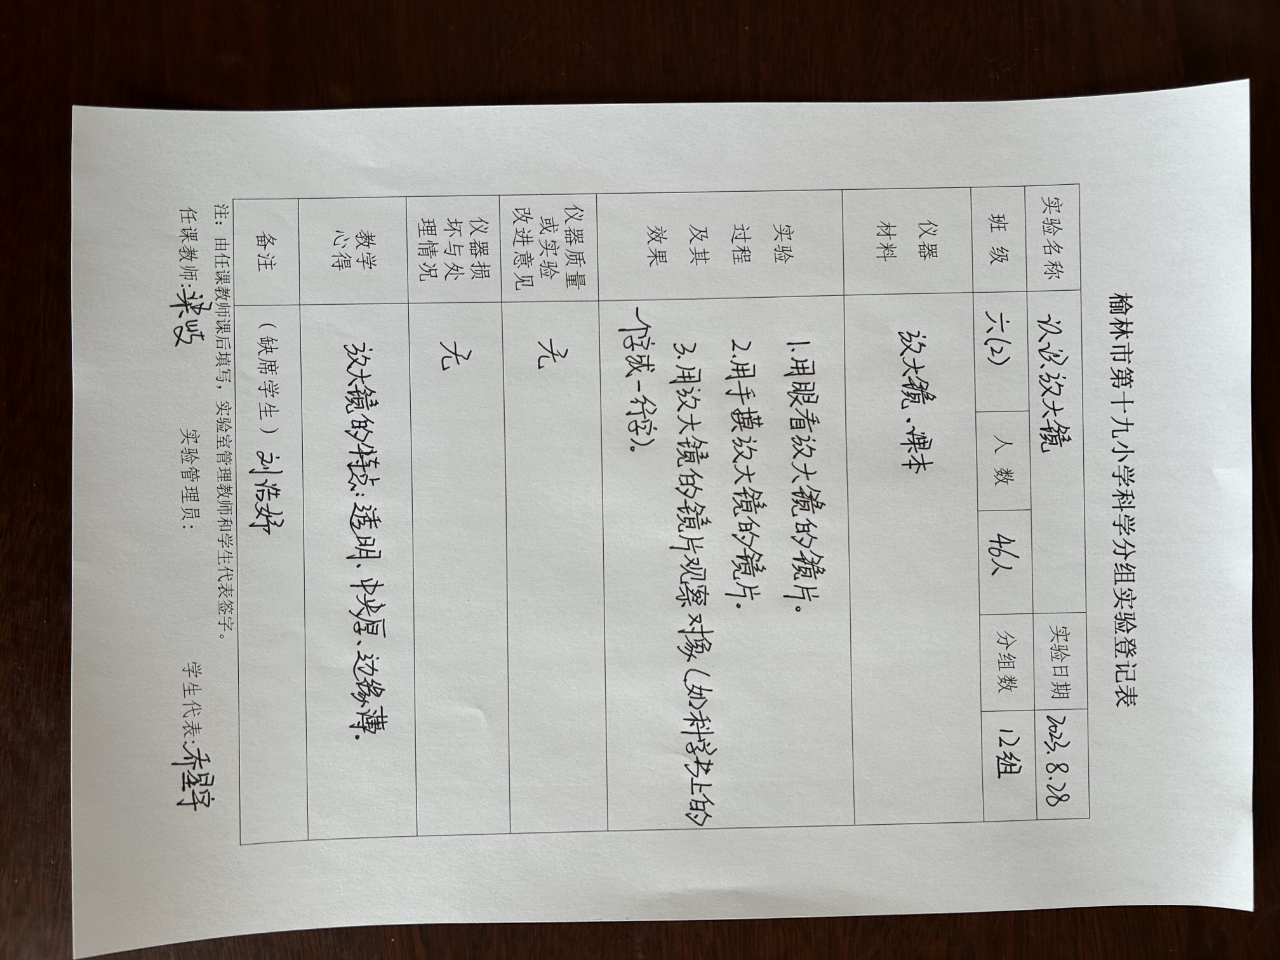 榆林市第十九小学科学分组实验登记表
实验名称 认识放大镜 实验日期 2023.8.28
班级 六(2) 人数 46人 分组数 12组
仪器
材料
放大镜、课本
实验
过程
及其
效果
1.用眼看放大镜的镜片。
2.用手摸放大镜的镜片.
3.用放大镜的镜片观察对象(如科学书上的
一个字或一行字)。
仪器质量
或实验
改进意见
无
仪器损
坏与处
理情况
无
教学
心得
放大镜的特点:透明、中央厚、边缘薄.
备注 (缺席学生) 刘浩婷
注:由任课教师课后填写,实验室管理教师和学生代表签字。
任课教师:梁 实验管理员: 学生代表:乔星宇